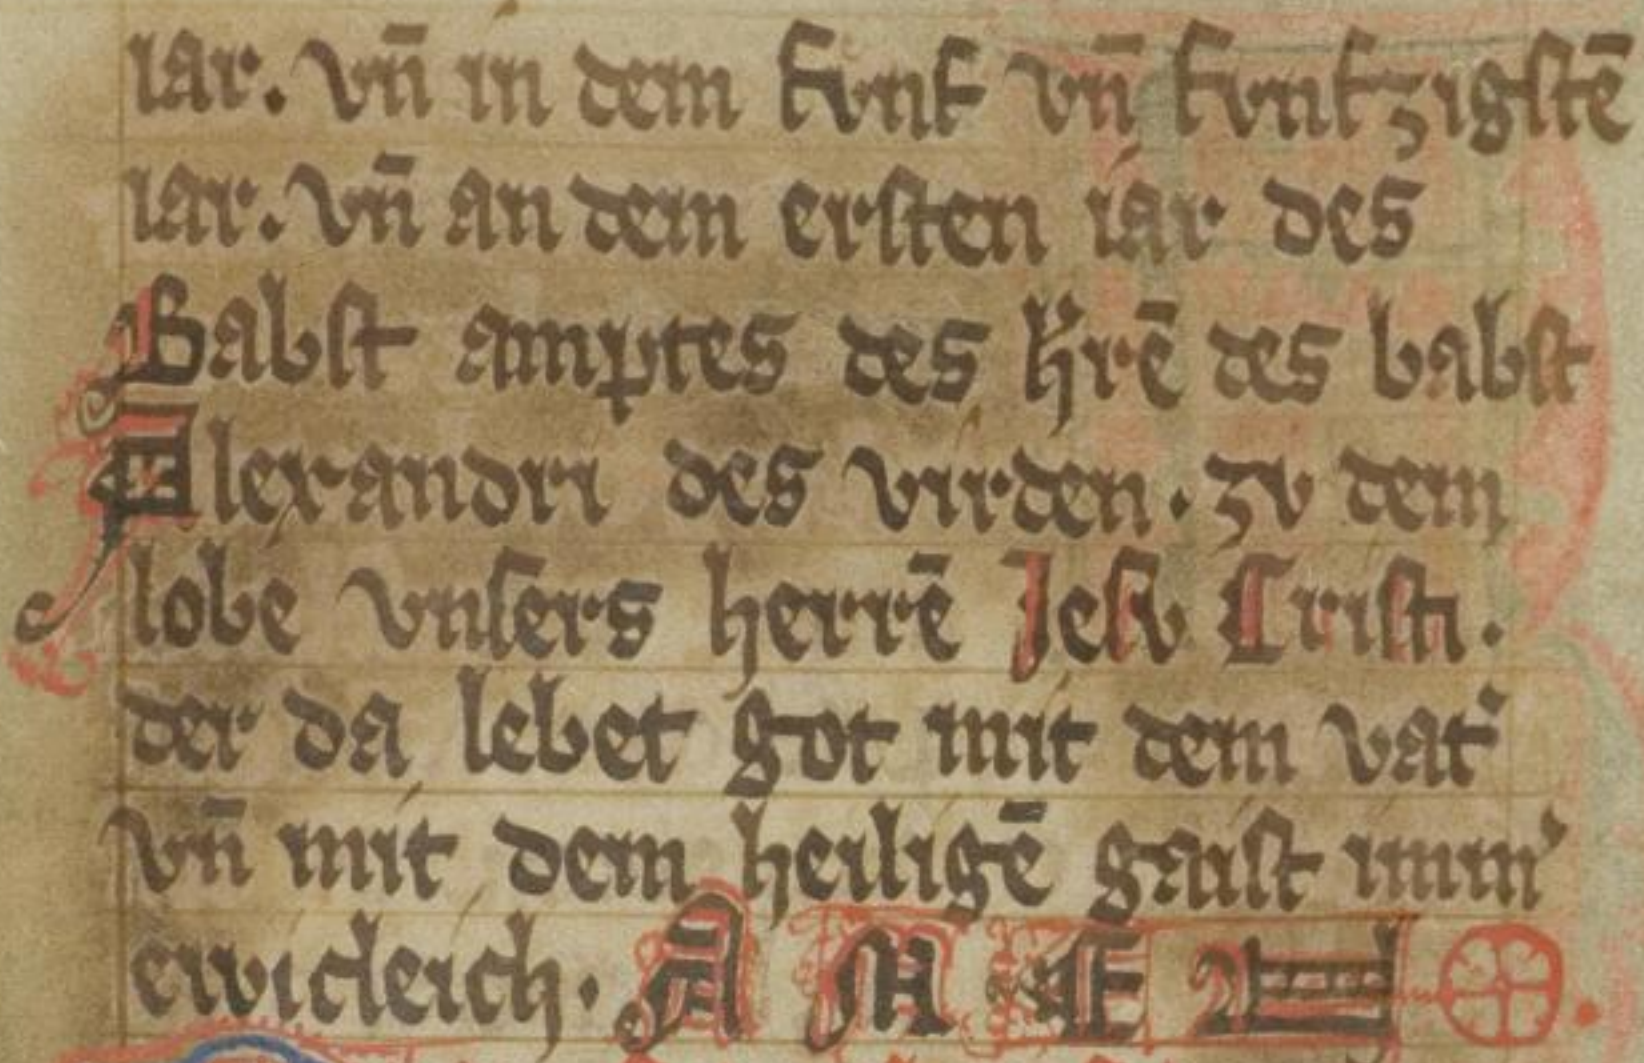 iar. vn̄ in dem fvnf vn̄ fvnfzigstē
iar. vn̄ an dem ersten iar des
Babst amptes des h̕rē des babst
Alexandri des virden. zv dem
lobe vnsers herrē Jesv Cristi.
der da lebet got mit dem vat̕
vn̄ mit dem heiligē gaist imm̕
ewicleich. AMEN